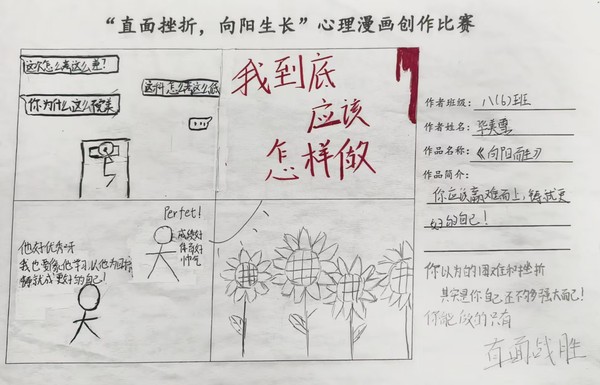 “直面挫折，向阳生长”心理漫画创作比赛
这次怎么考这么差?
这次怎么考这么低
你为什么这么
我到底
应该
怎样做
作者班级：八(6)班
作者姓名：毕美
作品名称：《向阳而生》
作品简介：
你应该赢难而上，铸就更
好的自己!
Perfet!
成绩好
体育好
帅气
他好优秀呀
我也要像他学习，以他为目标
铸就成更好的自己!
你以为的困难和挫折
其实是你自己还不够强大而已!
你能做的只有
直面战胜